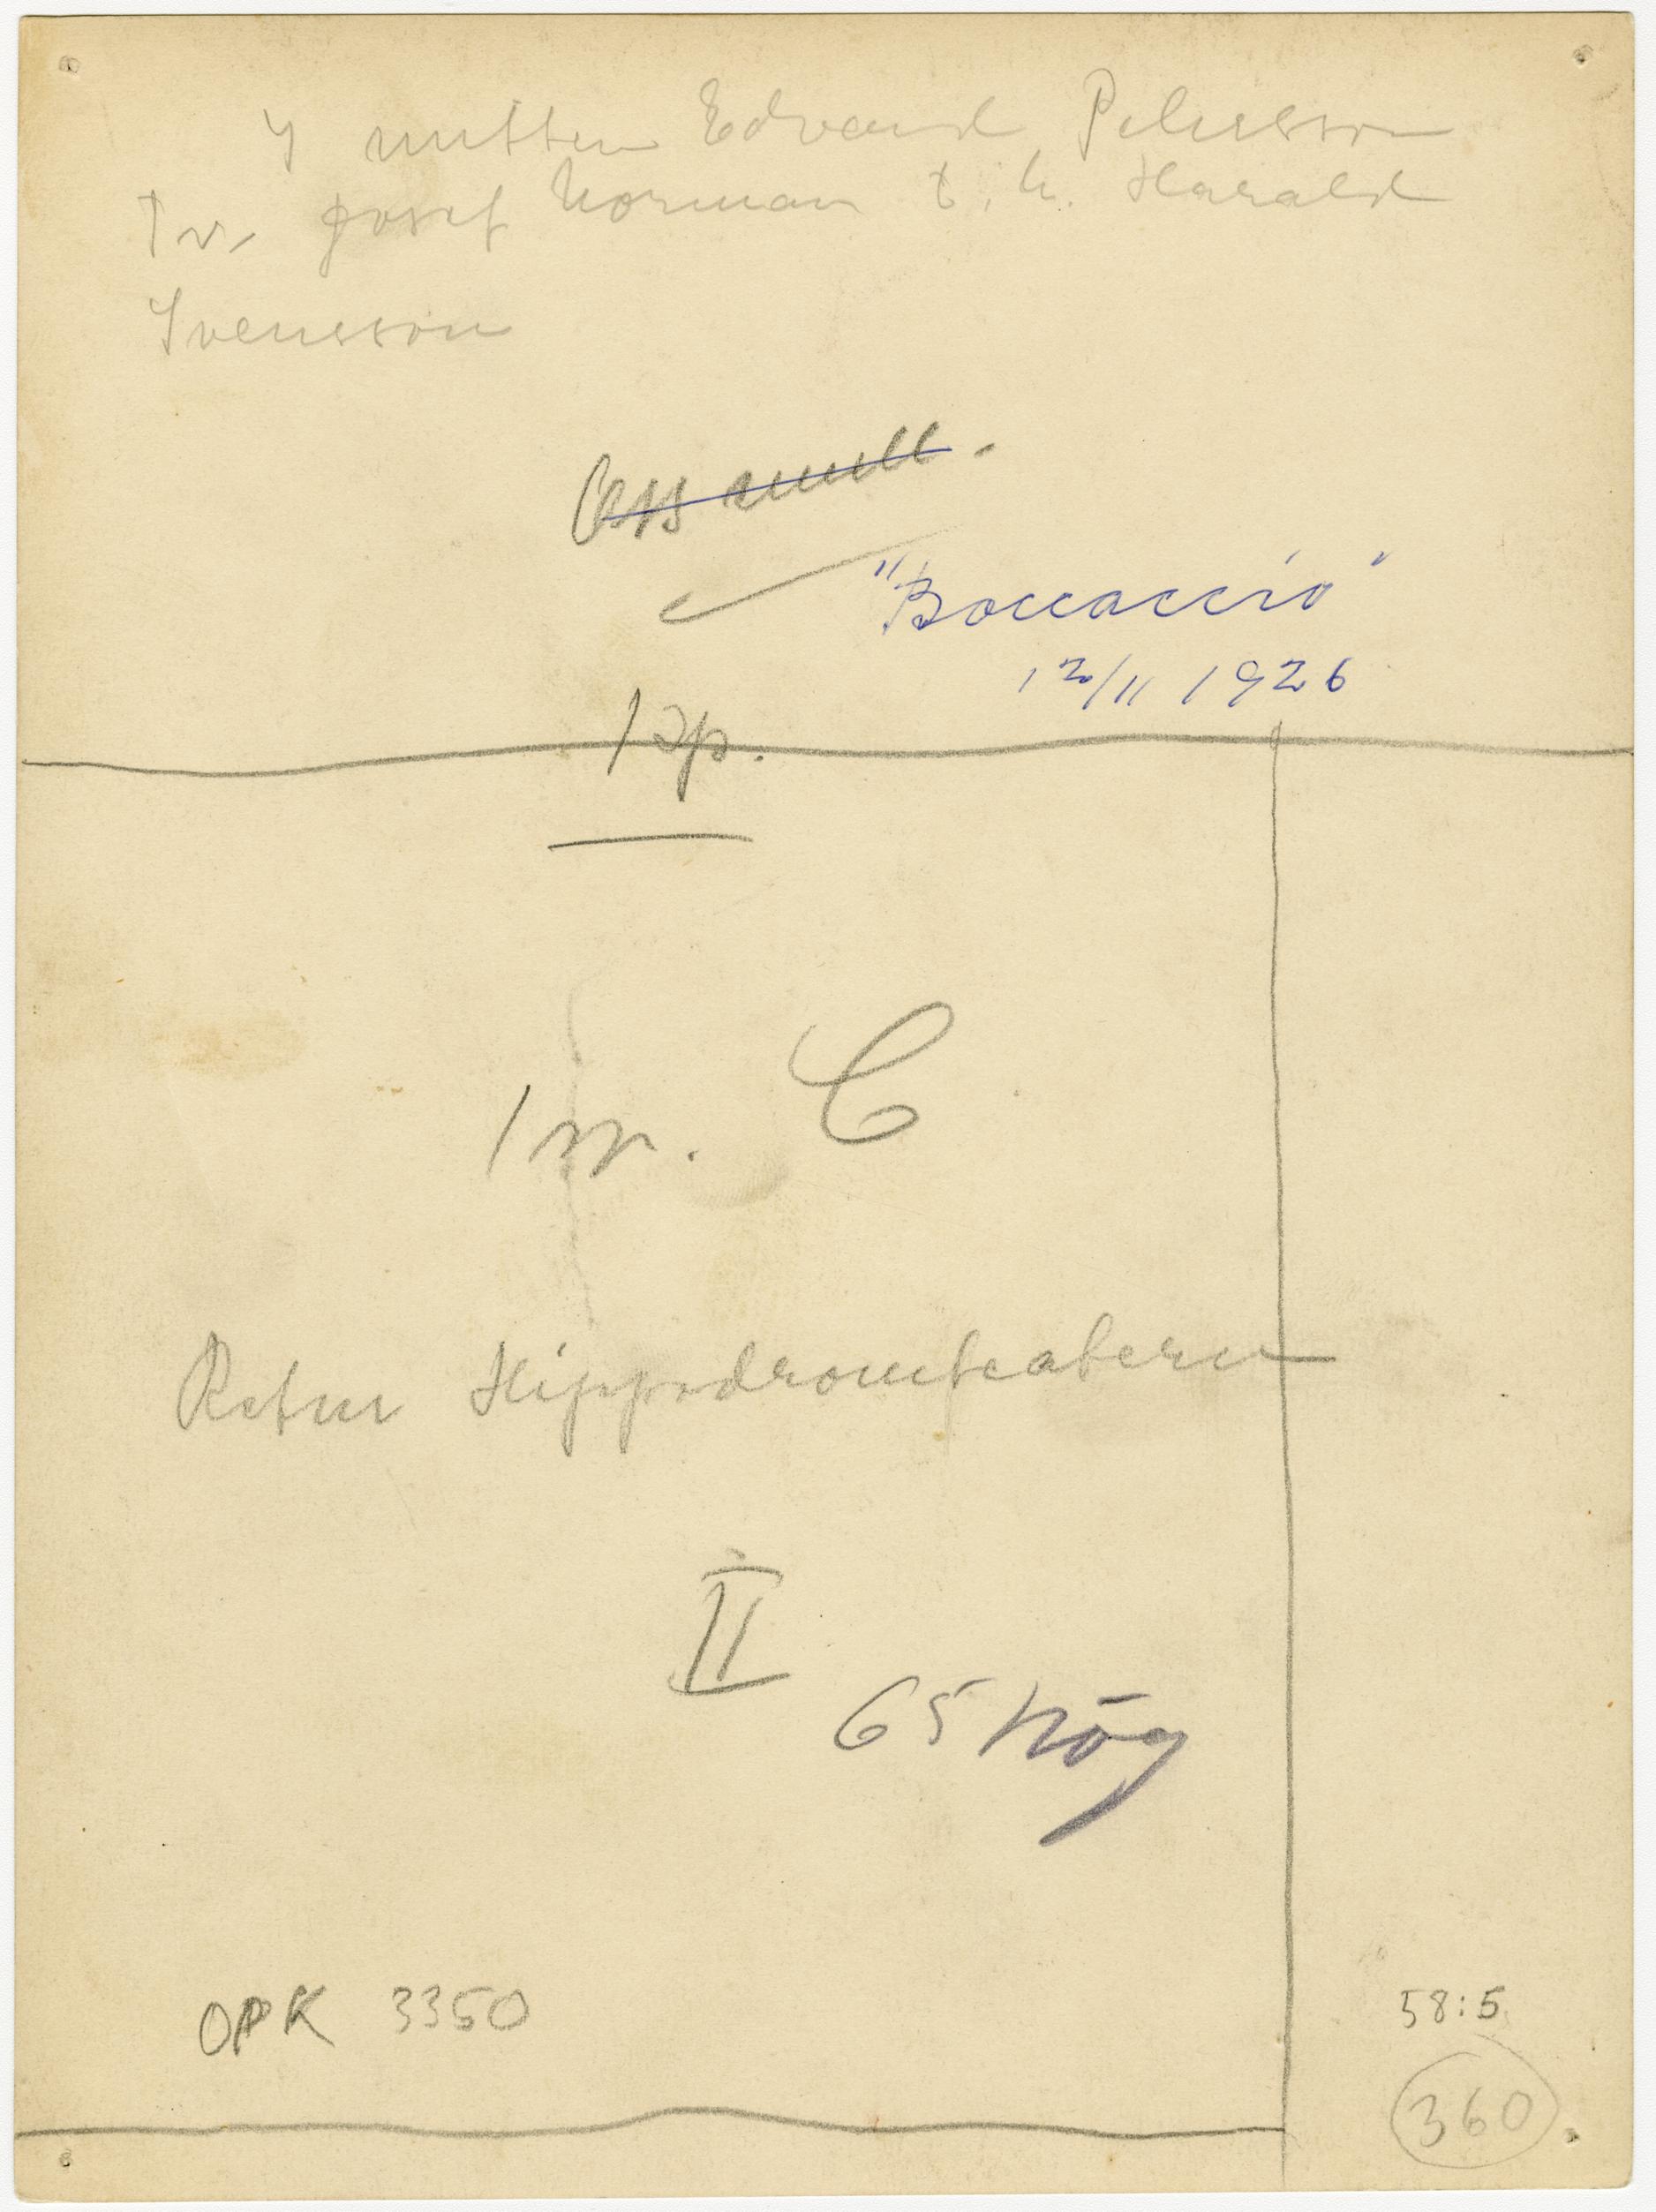 I mitten Edvard Persson
T.v. Josef Norman t.h. Harald
Svensson
"Boccaccio"
12/11 1926
1 sp.
C
Retur Hippodromteatern
II
65 hög
OPK 3350
58:5
360